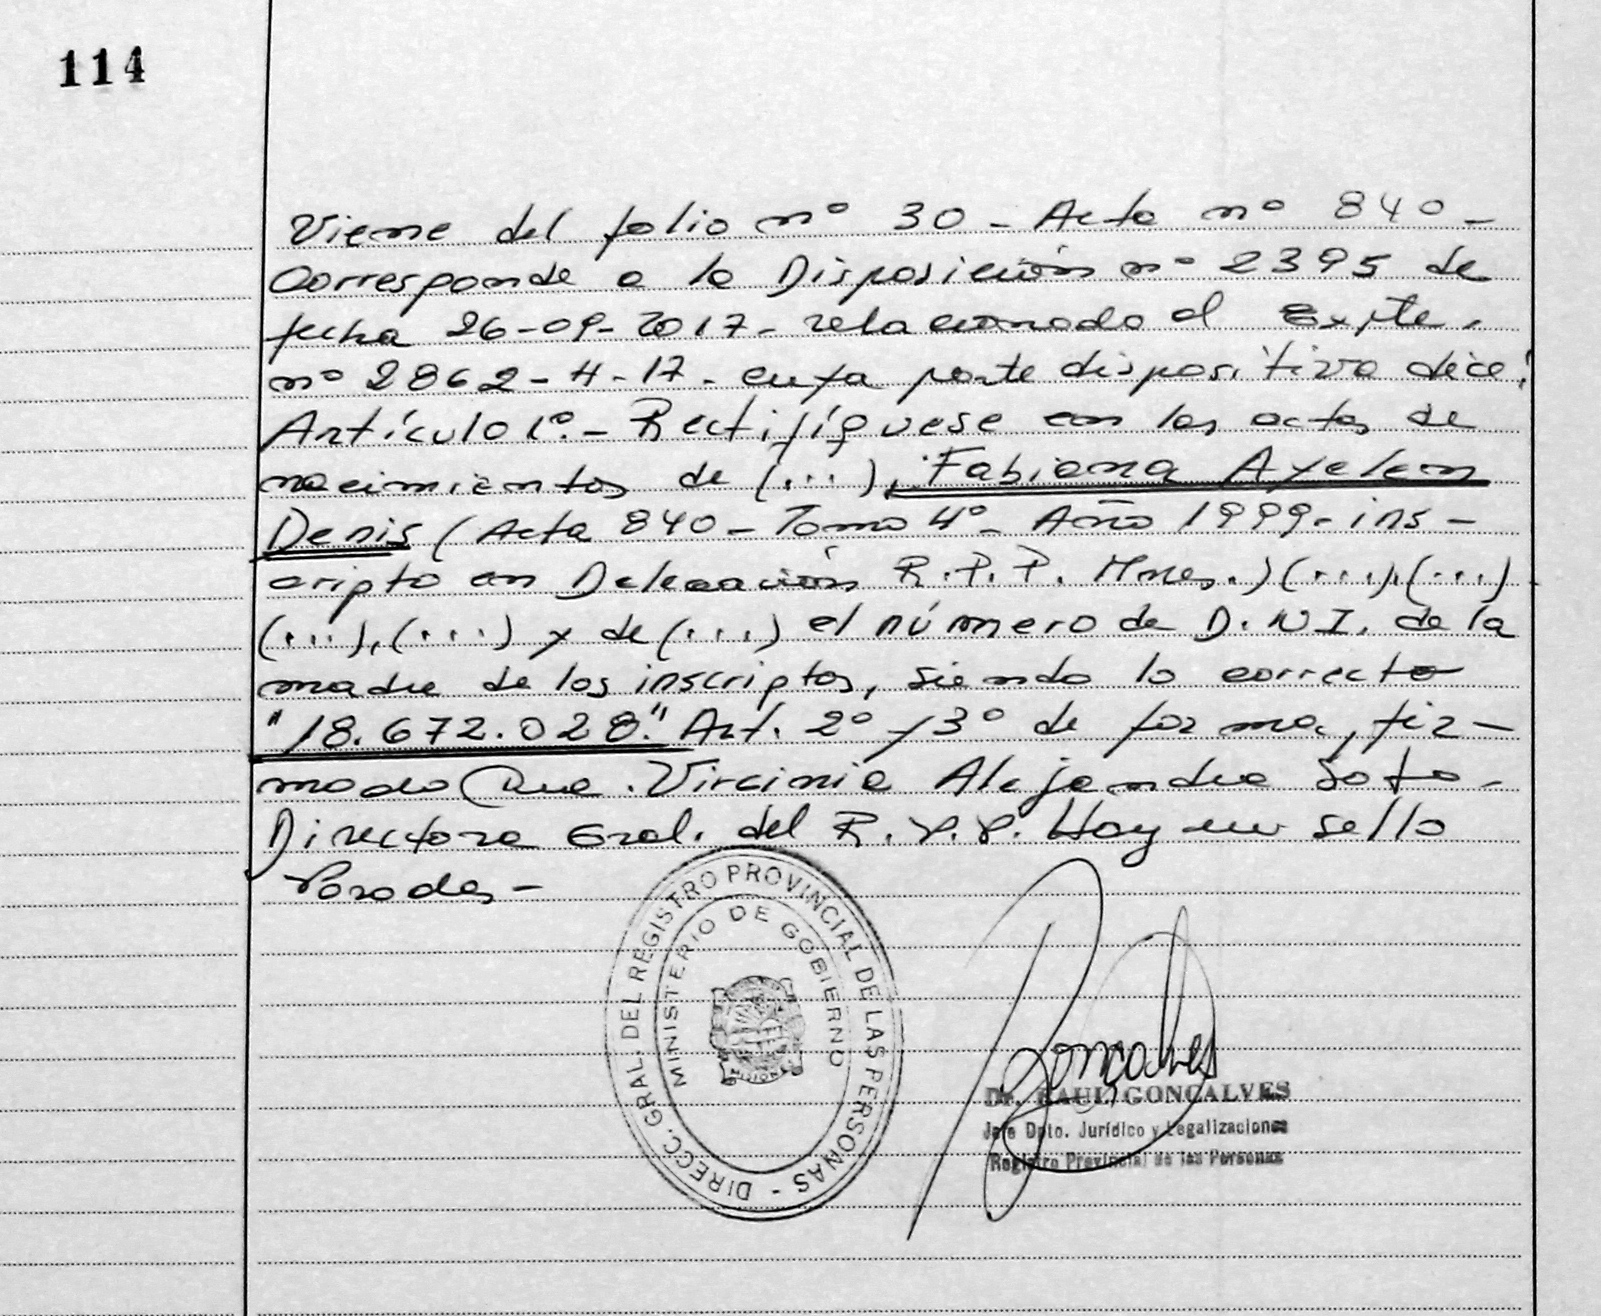 114
Viene del folio nº 30 - Acta nº 840 -
Corresponde a la Disposición nº 2395 de
fecha 26-09-2017- relacionado al Expte.
nº 2862-H-17- cuya parte dispositiva dice:
Artículo 1º.- Rectifíquese en las actas de
nacimientos de (...), Fabiana Ayelen
Denis (Acta 840 - Tomo 4º - Año 1999- ins-
cripto en Delegación R.P.P. Mnes.) (...), (...)
(...), (...) y de (...) el número de D.N.I. de la
madre de los inscriptos, siendo lo correcto
"18.672.028." Art. 2º y 3º de forma, fir-
mado Dra. Virginia Alejandra Soto -
Directora Gral. del R.P.P. Hay un sello
Posadas -
DIRECC. GRAL. DEL REGISTRO PROVINCIAL DE LAS PERSONAS -
MINISTERIO DE GOBIERNO
MISIONES
Gonçalves
Dr. RAUL GONÇALVES
Jefe Dpto. Jurídico y Legalizaciones
Registro Provincial de las Personas